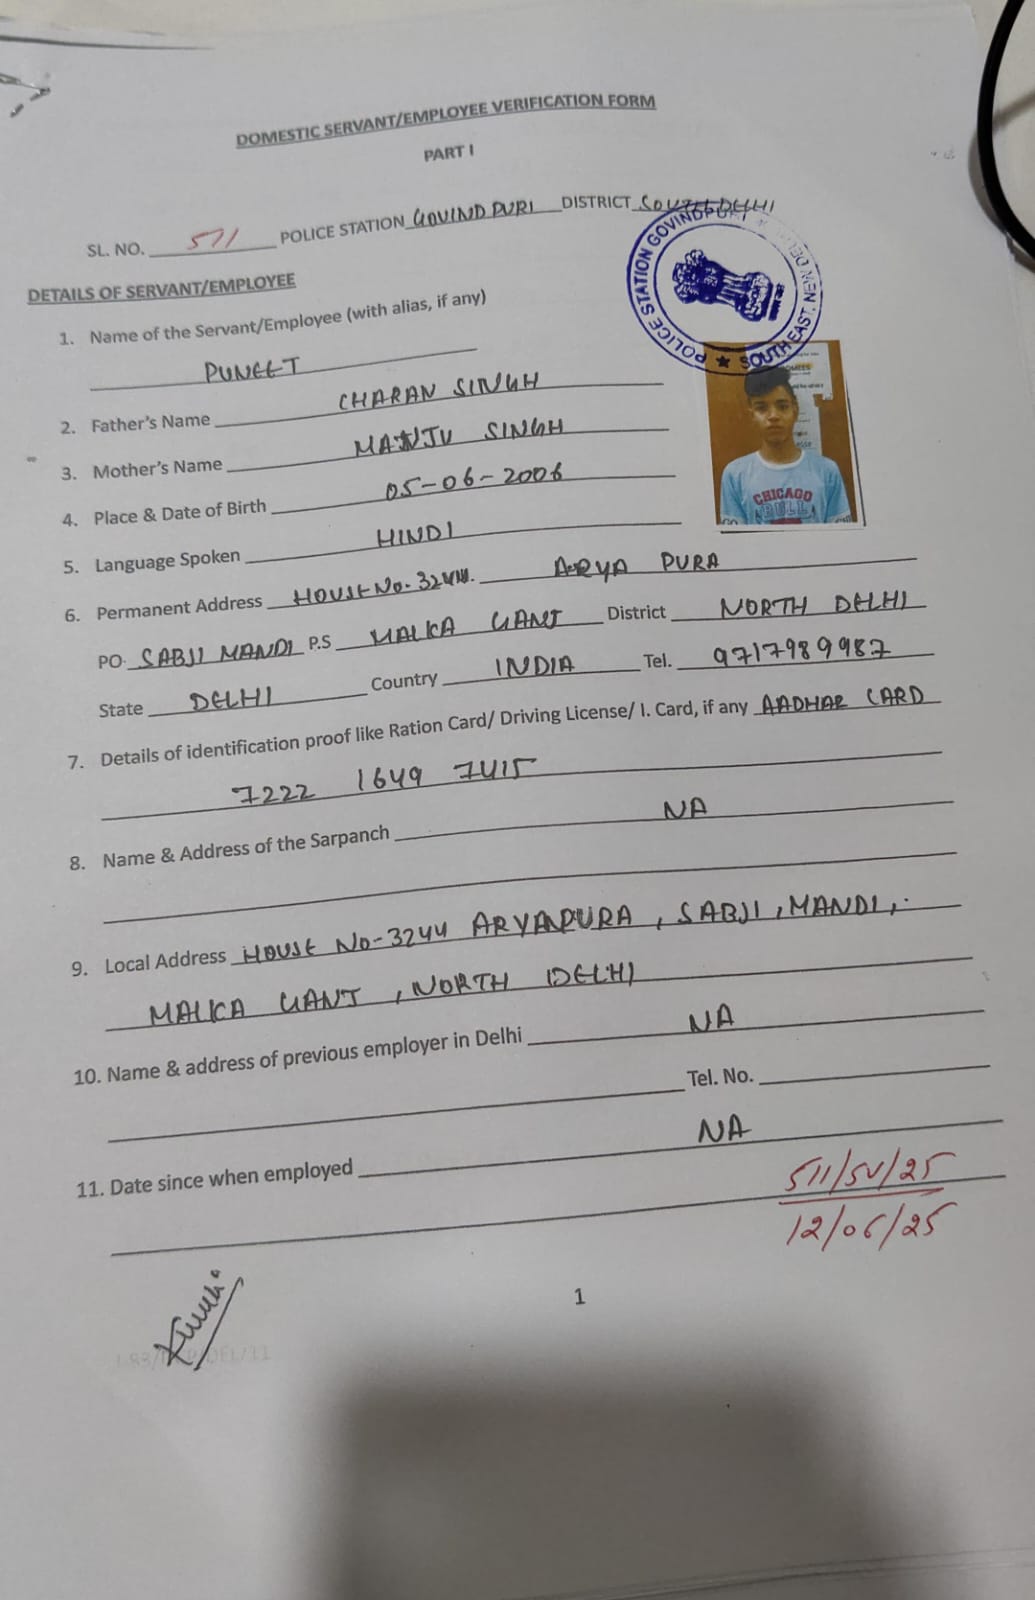 DOMESTIC SERVANT/EMPLOYEE VERIFICATION FORM
PART I
SL. NO. 571 POLICE STATION GOVINDPURI DISTRICT SOUTH DELHI
POLICE STATION GOVINDPURI ★ SOUTH EAST, NEW DELHI
DETAILS OF SERVANT/EMPLOYEE
1. Name of the Servant/Employee (with alias, if any)
PUNEET
2. Father's Name CHARAN SINGH
3. Mother's Name MANJU SINGH
4. Place & Date of Birth 05-06-2006
5. Language Spoken HINDI
CHICAGO
BULL
6. Permanent Address HOUSE NO. 3244. ARYA PURA
PO. SABJI MANDI P.S MALKA GANJ District NORTH DELHI
State DELHI Country INDIA Tel. 9717989987
7. Details of identification proof like Ration Card/ Driving License/ I. Card, if any AADHAR CARD
7222 1649 7415
8. Name & Address of the Sarpanch NA
9. Local Address HOUSE NO-3244 ARYAPURA, SABJI, MANDI,.
MALKA GANJ, NORTH DELHI
10. Name & address of previous employer in Delhi NA
Tel. No.
11. Date since when employed NA
511/SV/25
12/06/25
1